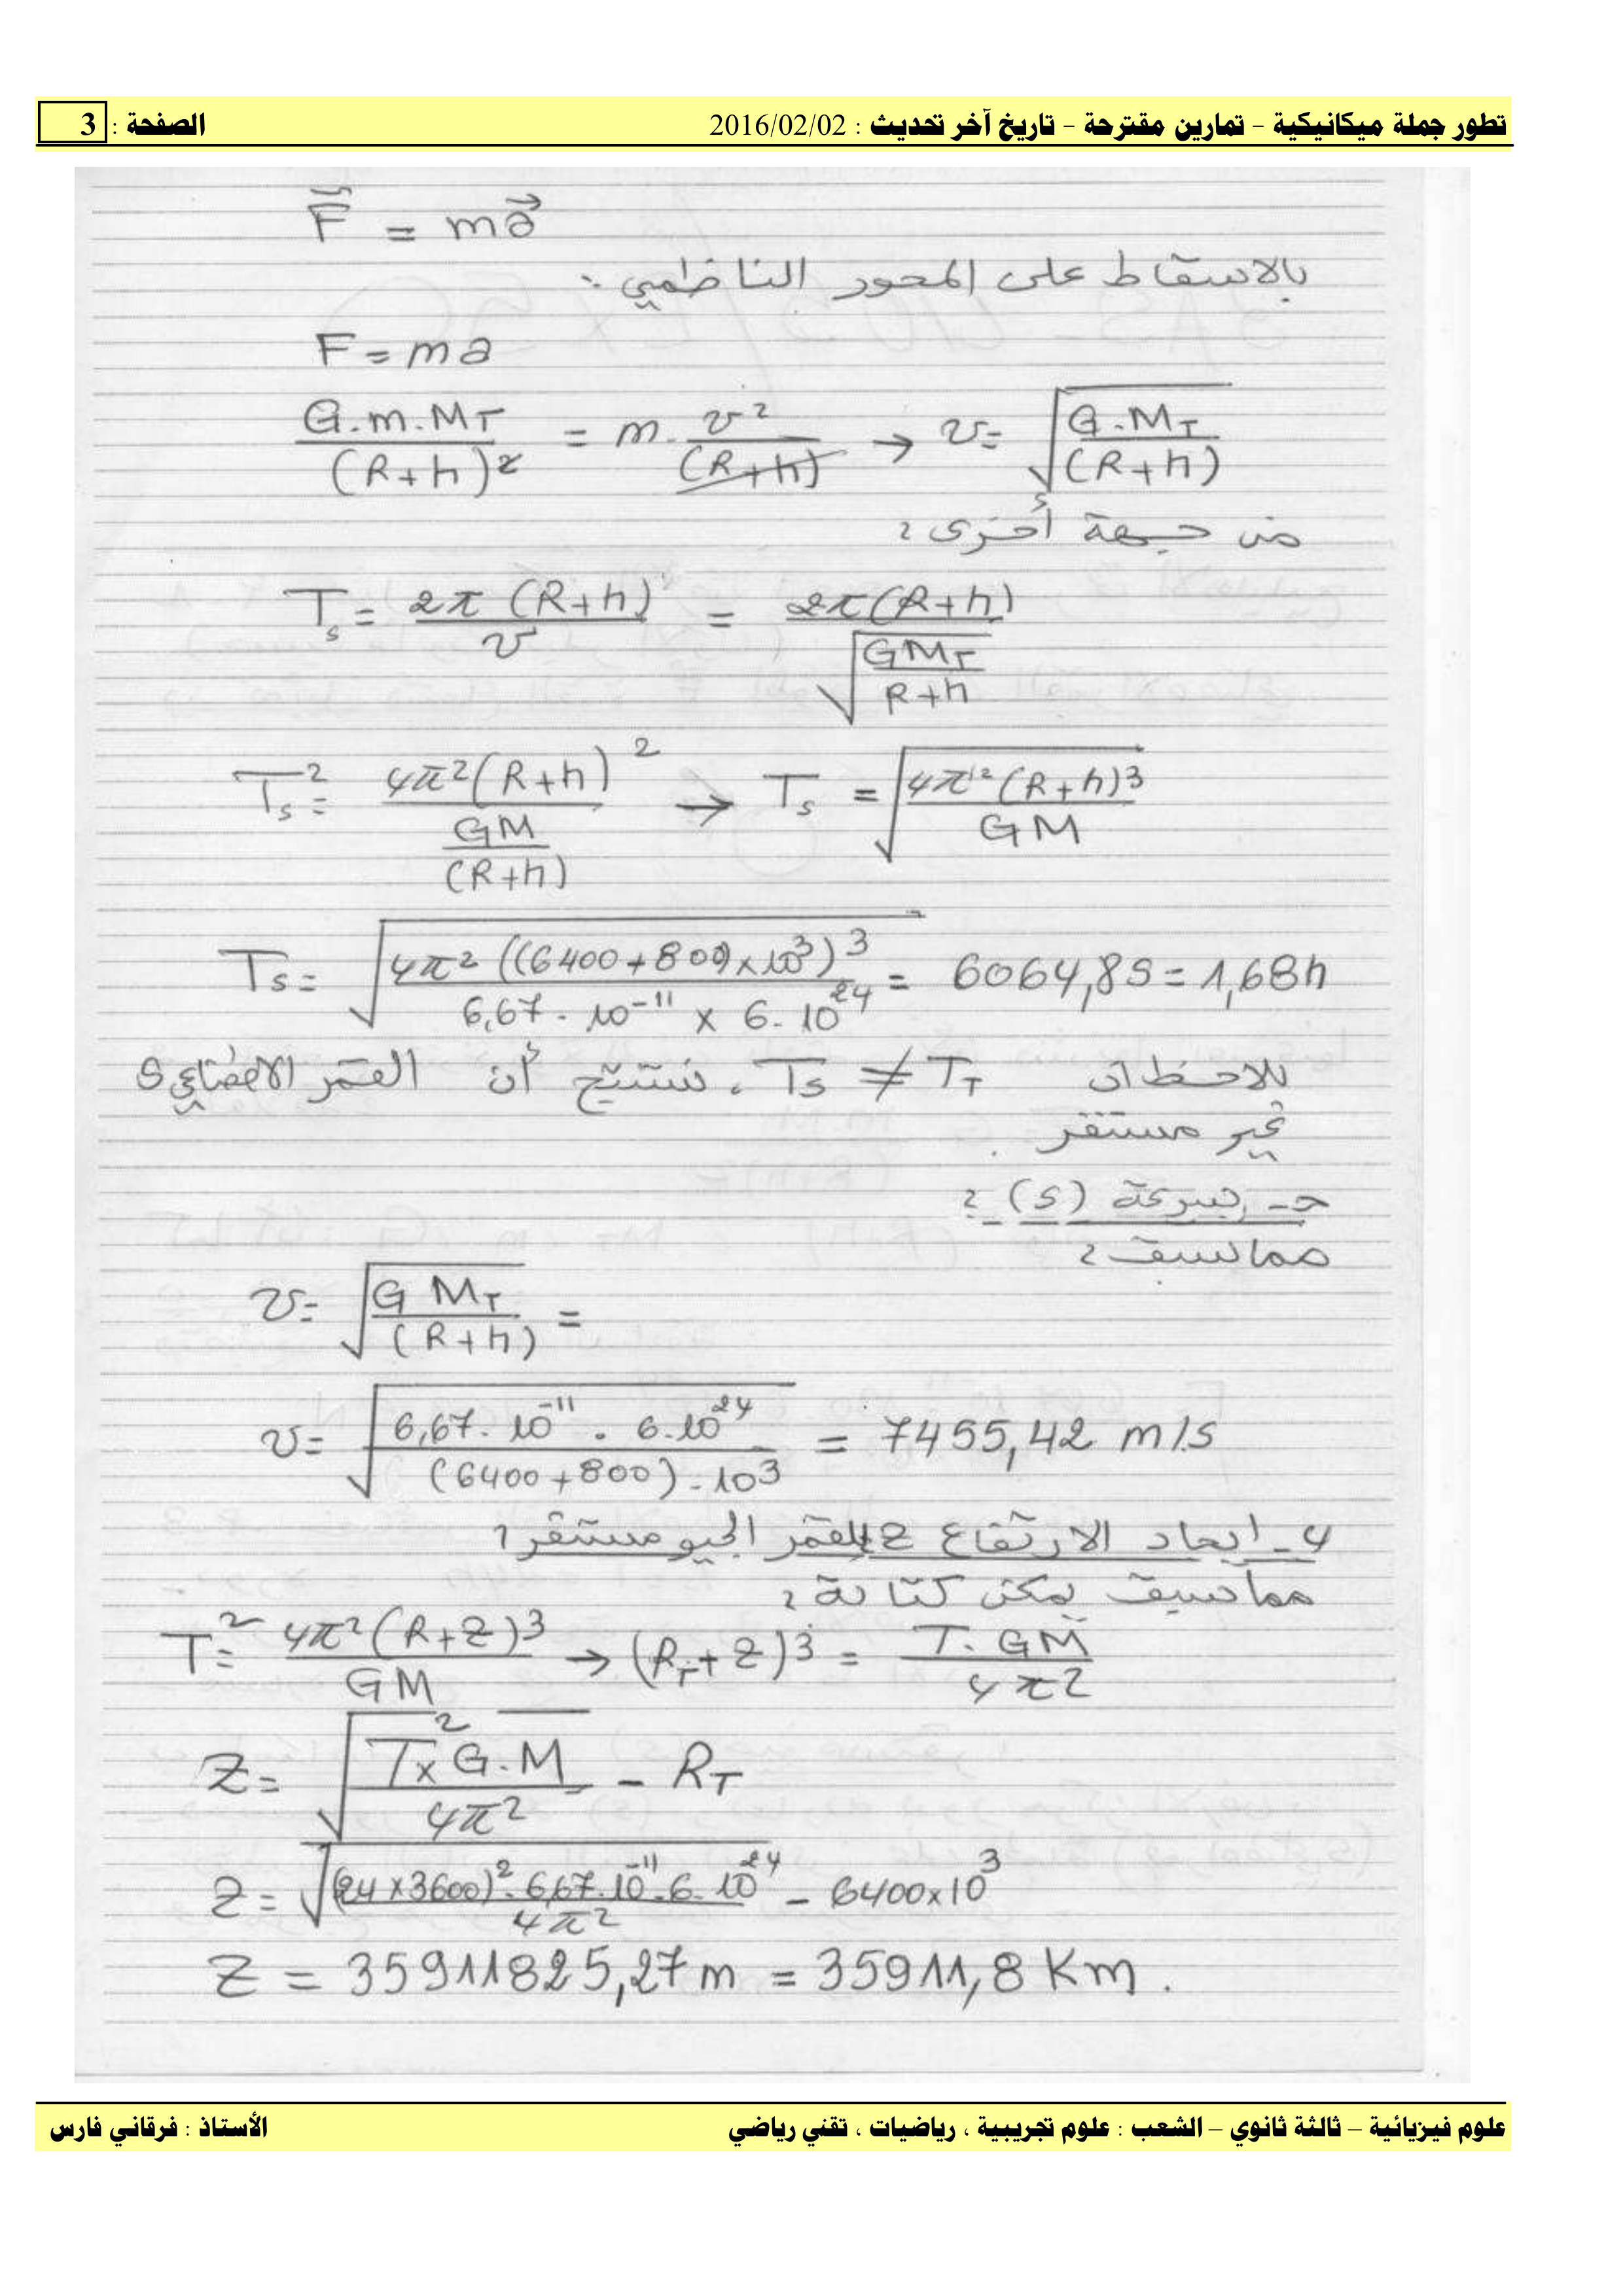 تطور جملة ميكانيكية - تمارين مقترحة - تاريخ آخر تحديث : 2016/02/02 الصفحة : 3
F = ma
بالاسقاط على المحور الناظمي :
F = ma
G.m.M_T / (R+h)² = m . v² / (R+h) → v = √(G.M_T / (R+h))
من جهة أخرى :
T_s = 2π(R+h) / v = 2π(R+h) / √(GM_T / R+h)
T_s² = 4π²(R+h)² / (GM / (R+h)) → T_s = √(4π²(R+h)³ / GM)
T_s = √(4π²((6400+800)×10³)³ / 6,67.10⁻¹¹ × 6.10²⁴) = 6064,8s = 1,68h
نلاحظ ان T_s ≠ T_T ، نستنتج أن القمر الاصطناعي S
غير مستقر .
حـ - سرعة (S) :
مما سبق :
v = √(G M_T / (R+h)) =
v = √(6,67.10⁻¹¹ . 6.10²⁴ / (6400+800).10³) = 7455,42 m/s
4 - ايجاد الارتفاع Z للقمر الجيو مستقر :
مما سبق يمكن كتابة :
T² = 4π²(R+Z)³ / GM → (R_T+Z)³ = T.GM / 4π²
Z = √(T² × G.M / 4π²) - R_T
Z = √((24×3600)².6,67.10⁻¹¹.6.10²⁴ / 4π²) - 6400×10³
Z = 35911825,27m = 35911,8 Km .
علوم فيزيائية – ثالثة ثانوي – الشعب : علوم تجريبية ، رياضيات ، تقني رياضي الأستاذ : فرقاني فارس